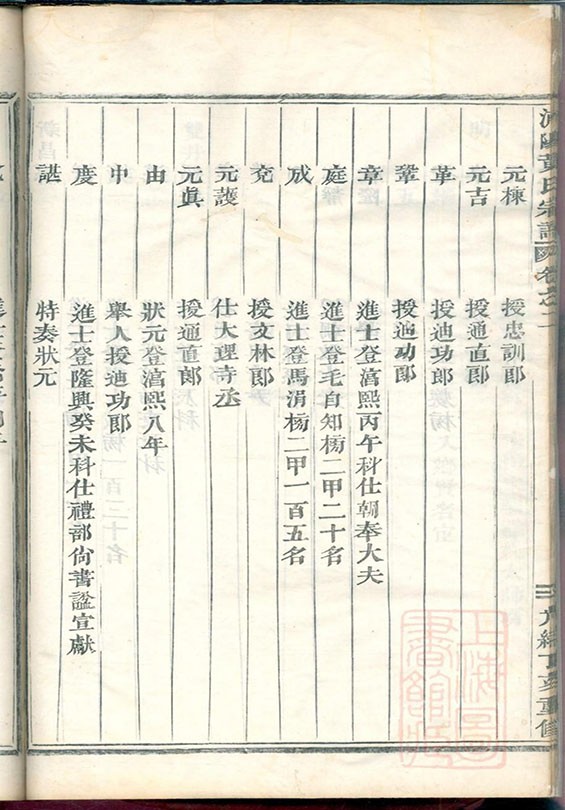 黃氏宗譜 卷之二
元棟 授忠訓郎
元吉 授通直郎
革 授迪功郎
鞏 授迪功郎
章 進士登湻熙丙午科仕朝奉大夫
庭 進士登毛自知榜二甲二十名
成 進士登馬涓榜二甲一百五名
兗 授文林郎
元護 仕大理寺丞
元眞 授通直郎
由 狀元登湻熙八年
中 舉人授迪功郎
度 進士登隆興癸未科仕禮部尙書諡宣獻
諶 特奏狀元
二 光緒丁亥重修
上海圖書館藏